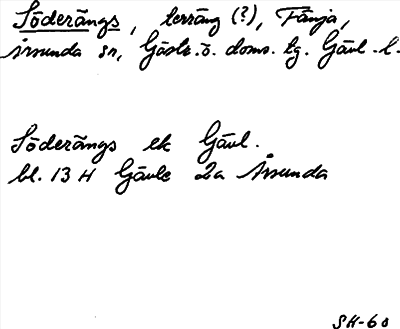 Söderängs, terräng (?), Fänja,
Årsunda sn, Gästr. ö. doms. tg. Gävl. l.
Söderängs ek Gävl.
bl. 13 H Gävle 2a Årsunda
SH-60